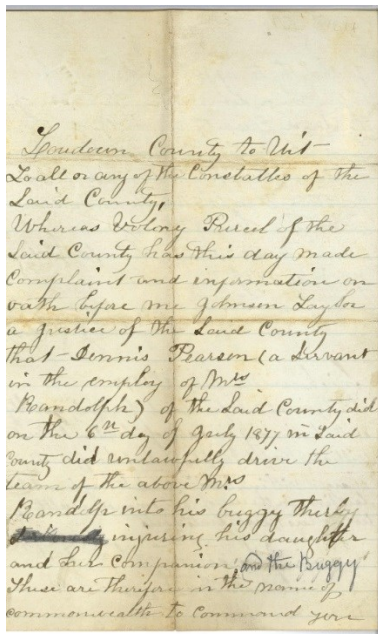 Loudoun County to Wit
To all or any of the Constables of the
Said County,
Whereas Volney Purcel of the
Said County has this day made
Complaint and information on
oath before me Johnson Taylor
a justice of the Said County
that Dennis Pearson (a Servant
in the employ of Mrs
Randolph) of the Said County did
on the 6th day of July 1877 in Said
County did unlawfully drive the
team of the above Mrs
Randolp into his buggy therby
injuring his daughter
and her companion and the Buggy
These are therefore in the name of
commonwealth to command you